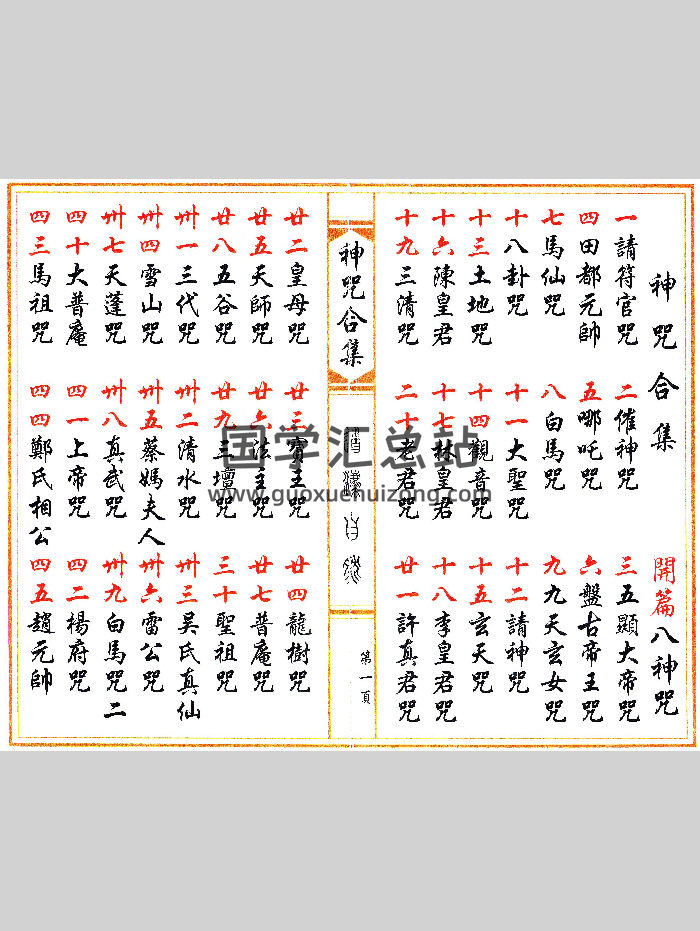 神咒合集
開篇八神咒
一請符官咒
二催神咒
三五顯大帝咒
四田都元帥
五哪吒咒
六盤古帝王咒
七馬仙咒
八白馬咒
九九天玄女咒
十八卦咒
十一大聖咒
十二請神咒
十三土地咒
十四觀音咒
十五玄天咒
十六陳皇君
十七林皇君
十八李皇君咒
十九三清咒
二十老君咒
廿一許真君咒
神咒合集
第一頁
廿二皇母咒
廿三寶王咒
廿四龍樹咒
廿五天師咒
廿六法主咒
廿七普庵咒
廿八五谷咒
廿九三壇咒
三十聖祖咒
卅一三代咒
卅二清水咒
卅三吴氏真仙
卅四雪山咒
卅五蔡媽夫人
卅六雷公咒
卅七天蓬咒
卅八真武咒
卅九白馬咒二
四十大普庵
四一上帝咒
四二楊府咒
四三馬祖咒
四四鄭氏相公
四五趙元帥
国学汇总站
www.guoxuehuizong.com